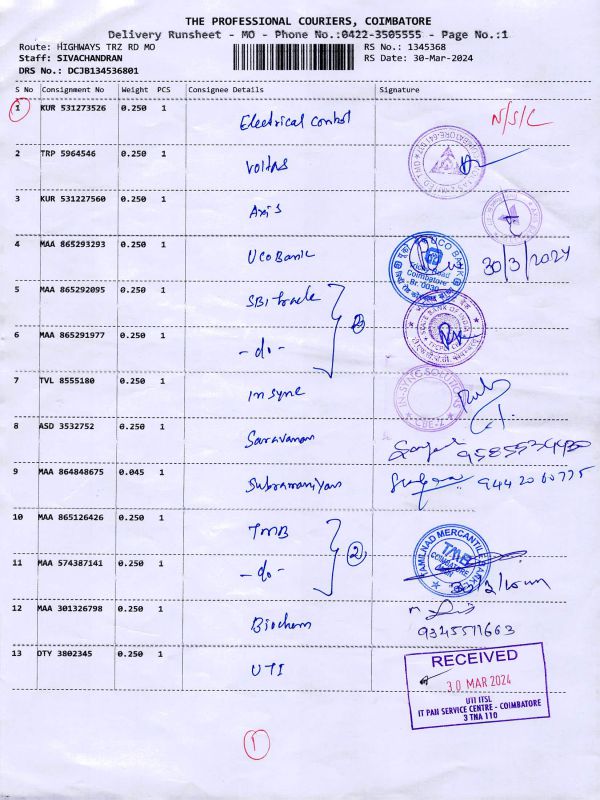 THE PROFESSIONAL COURIERS, COIMBATORE
Delivery Runsheet - MO - Phone No.:0422-3505555 - Page No.:1
Route: HIGHWAYS TRZ RD MO
RS No.: 1345368
Staff: SIVACHANDRAN
RS Date: 30-Mar-2024
DRS No.: DCJB134536801
S No Consignment No Weight PCS Consignee Details Signature
1 KUR 531273526 0.250 1 Electrical Control N/S/L
2 TRP 5964546 0.250 1 Voltas
3 KUR 531227560 0.250 1 Axis
4 MAA 865293293 0.250 1 UCO Bank 30/3/2024
UCO BANK
Coimbatore
Br. 0030
5 MAA 865292095 0.250 1 SBI trade
2
STATE BANK OF INDIA
6 MAA 865291977 0.250 1 -do-
7 TVL 8555180 0.250 1 Insync
IN-SYNC SOLUTIONS
CBE-2
8 ASD 3532752 0.250 1 Saravanan
9585534430
9 MAA 864848675 0.045 1 Subramaniyan
9442060775
10 MAA 865126426 0.250 1 TMB
2
TAMILNAD MERCANTILE BANK
TMB
COIMBATORE
11 MAA 574387141 0.250 1 -do-
12 MAA 301326798 0.250 1 Biochem
9345571663
13 DTY 3802345 0.250 1 UTI
RECEIVED
30 MAR 2024
UTI ITSL
IT PAN SERVICE CENTRE - COIMBATORE
3 TNA 110
1